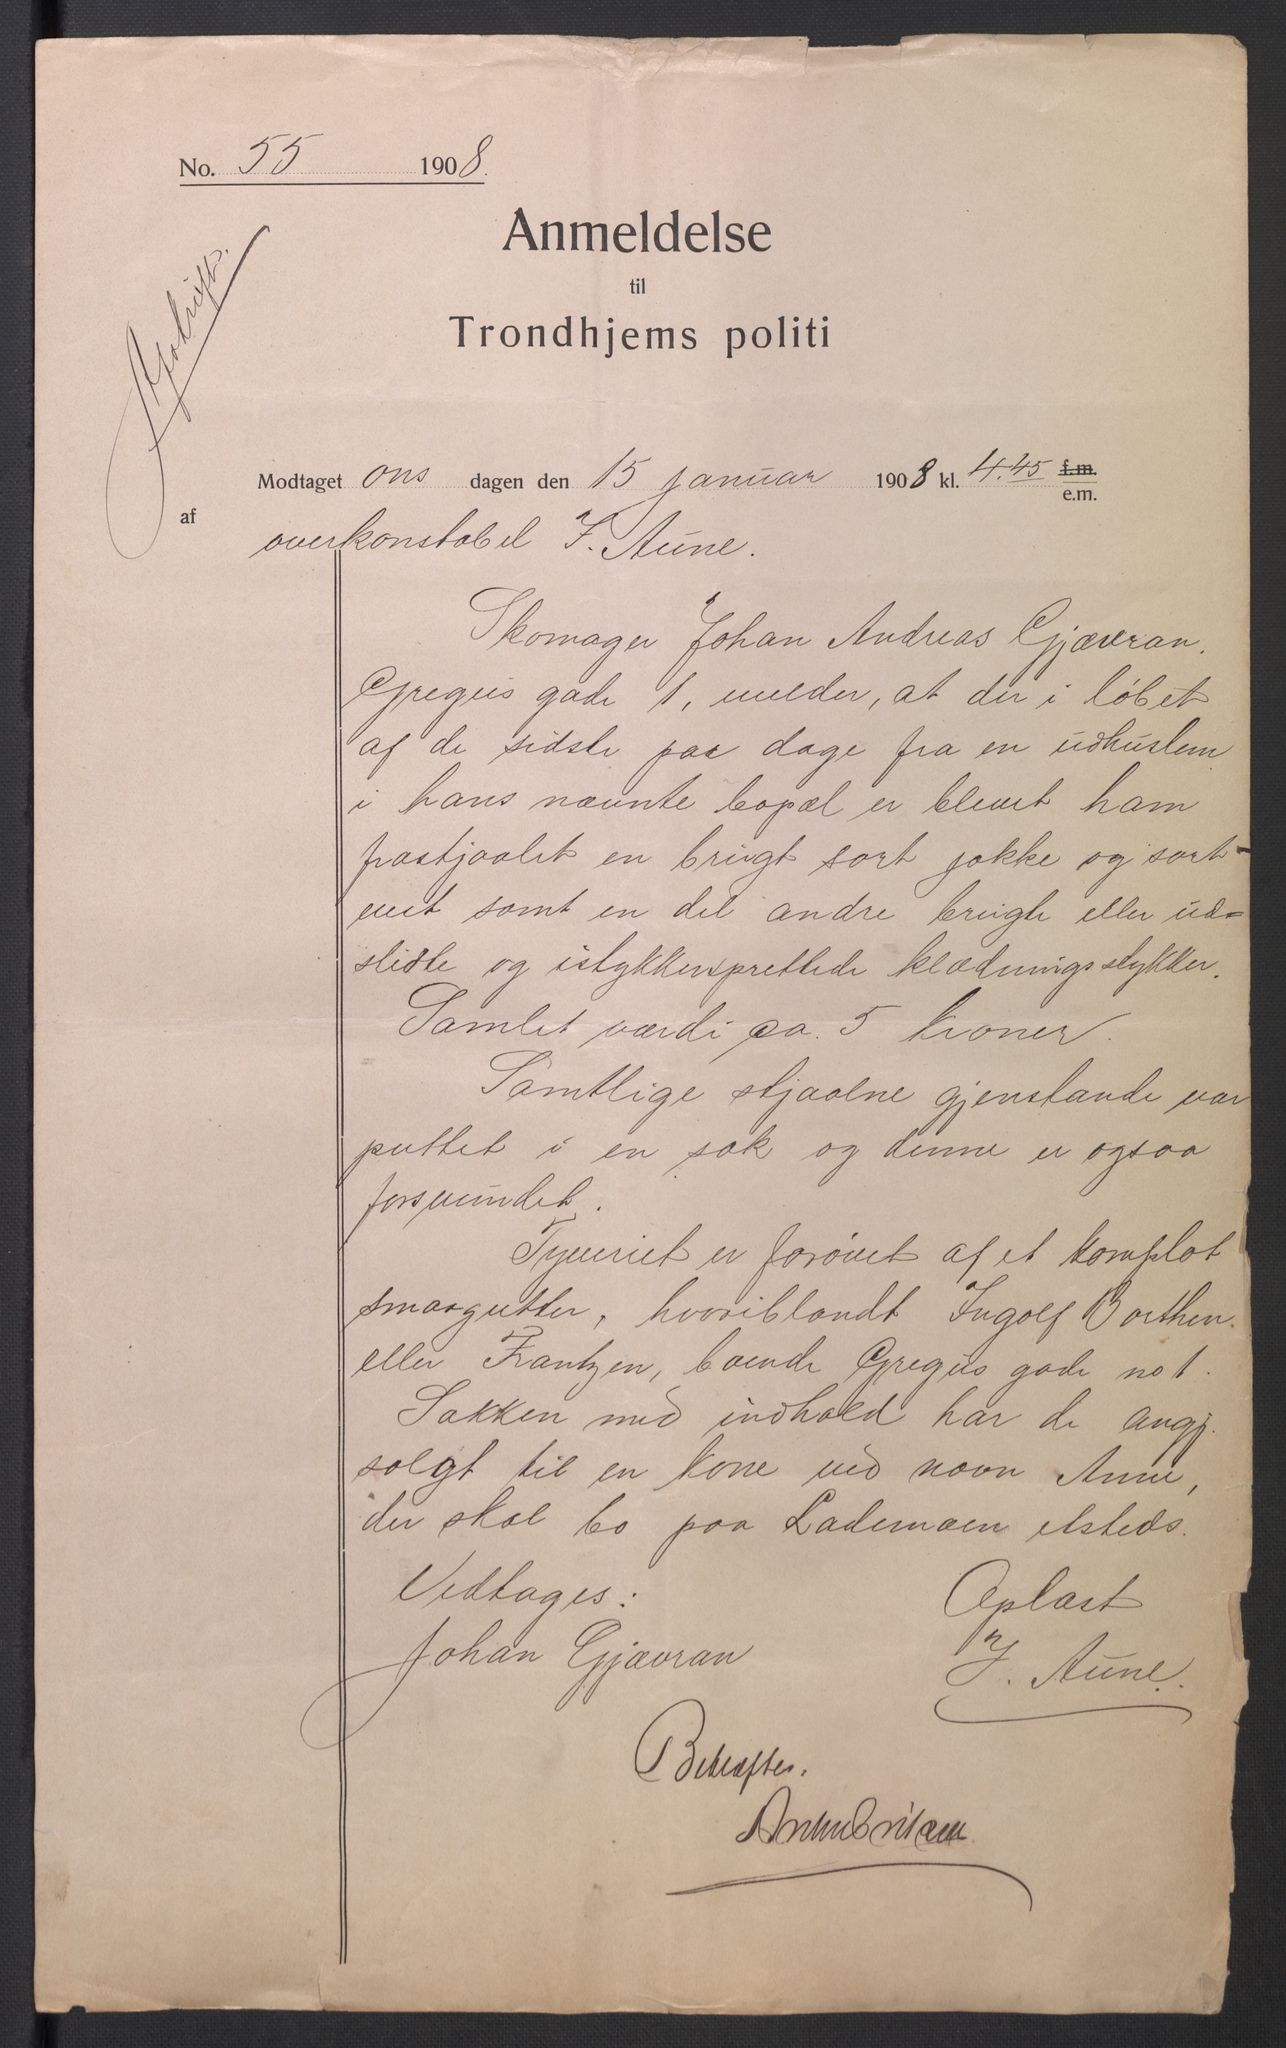 No. 55 1908.
Afskrift.
Anmeldelse
til
Trondhjems politi
Modtaget ons dagen den 15 januar 1908 kl. 4.45 f.m.
e.m.
af
overkonstabel J. Aune.
Skomager Johan Andreas Gjævran,
Gregus gade 1, melder, at der i løbet
af de sidste paa dage fra en udhuslem
i hans nævnte bopæl er blevet ham
frastjaalet en brugt sort jakke og sort
vest samt en del andre brugte eller ud=
slidte og istykkersprettede klædningsstykker.
Samlet værdi ca. 5 kroner.
Samtlige stjaalne gjenstande var
puttet i en sæk og denne er ogsaa
forsvundet.
Tyveriet er forøvet af et komplot
smaagutter, hvoriblandt Ingolf Borthen
eller Frantzen, boende Gregus gade no 1.
Sækken med indhold har de angj.
solgt til en kone ved navn Anne,
der skal bo paa Lademoen etsteds.
Vedtages: Oplæst
Johan Gjævran J. Aune.
Bekræftes.